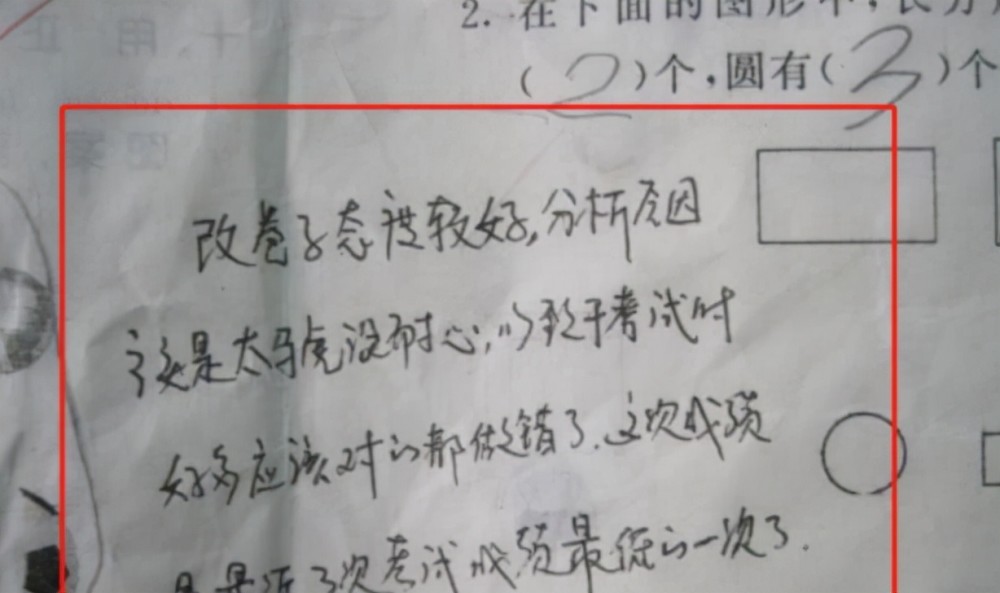 2. 在下面的图形中,长方
(2)个,圆有(3)个
改卷子态度较好,分析原因
应该是太马虎没耐心,以致于考试时
好多应该对的都做错了.这次成绩
是近3次考试成绩最低的一次了.